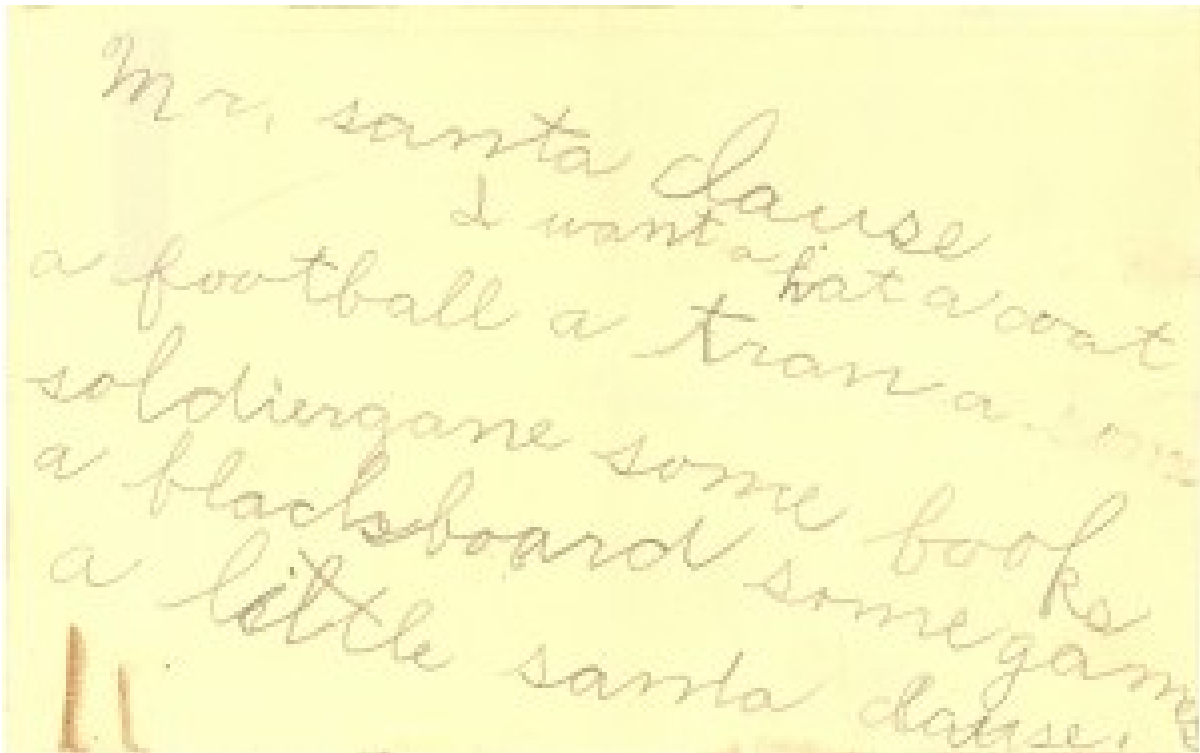 Mr. santa clause
I want a hat a coat
a football a tran a
soldiergane some books
a blackboard some games
a little santa clause.